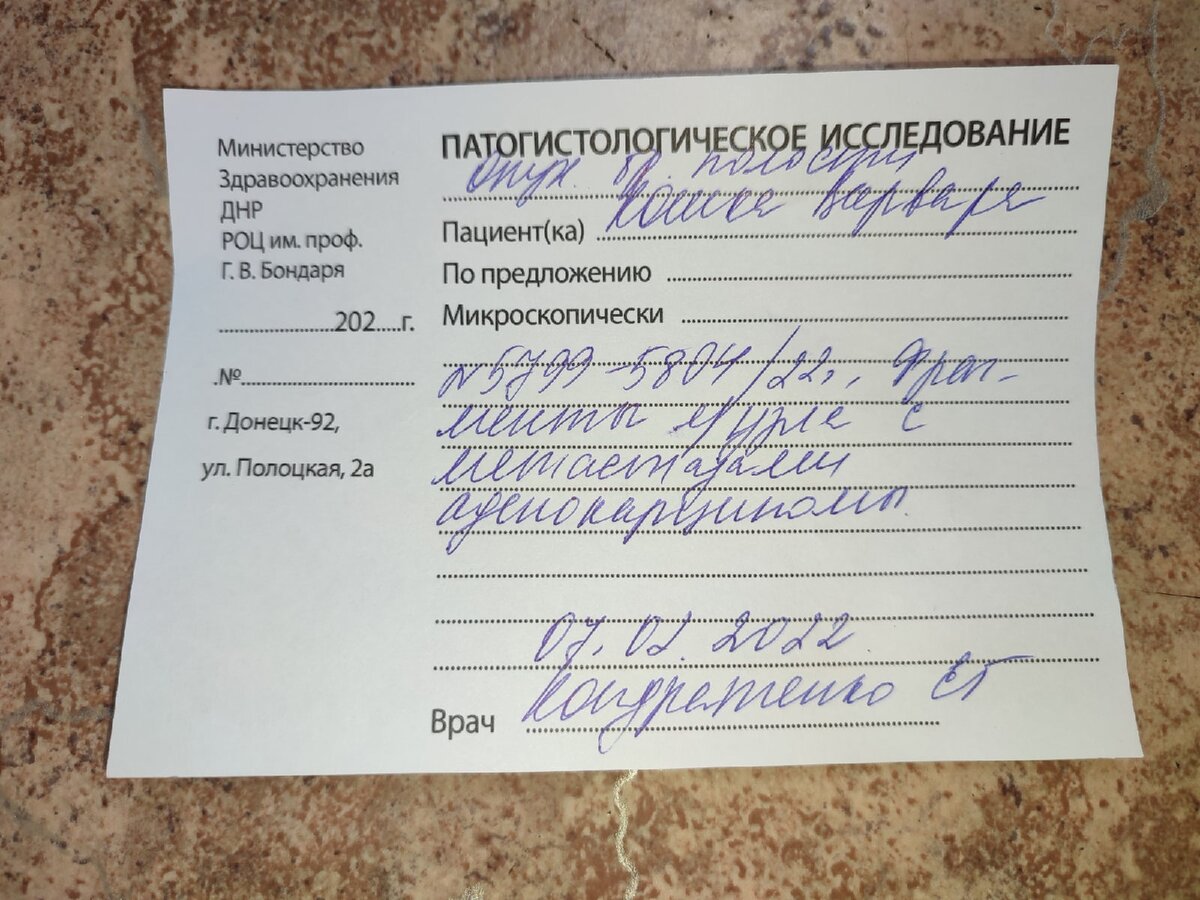 Министерство
Здравоохранения
ДНР
РОЦ им. проф.
Г. В. Бондаря
202 г.
.№
г. Донецк-92,
ул. Полоцкая, 2а
ПАТОГИСТОЛОГИЧЕСКОЕ ИССЛЕДОВАНИЕ
Опух. бр. полости
Пациент(ка) Кошка Варвара
По предложению
Микроскопически
№5799-5804/22г., Фраг-
менты л/узла с
метастазами
аденокарциномы.
07.02.2022
Врач Кондратенко ЕГ